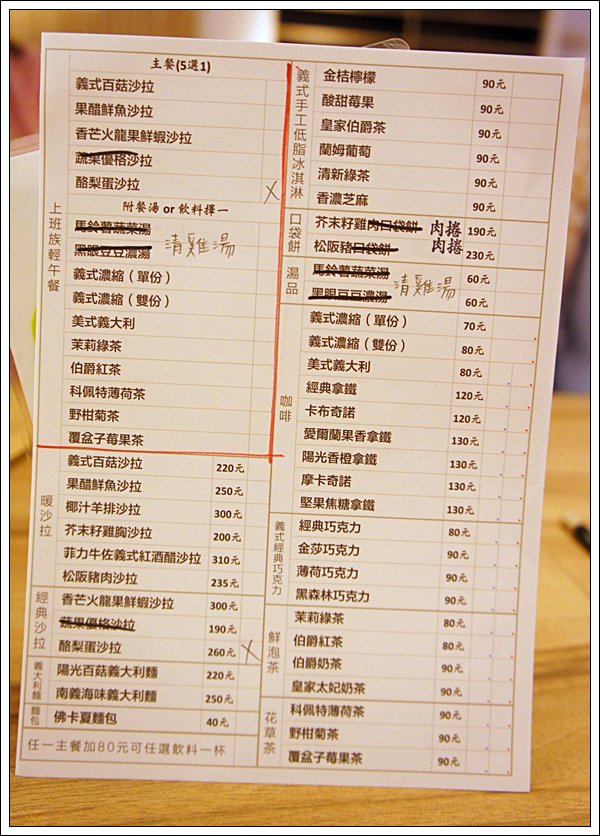 主餐(5選1)
上班族輕午餐
義式百菇沙拉
果醋鮮魚沙拉
香芒火龍果鮮蝦沙拉
蔬果優格沙拉
酪梨蛋沙拉 X
附餐湯 or 飲料擇一
馬鈴薯蔬菜湯
黑眼豆豆濃湯 清雞湯
義式濃縮（單份）
義式濃縮（雙份）
美式義大利
茉莉綠茶
伯爵紅茶
科佩特薄荷茶
野柑菊茶
覆盆子莓果茶
暖沙拉
義式百菇沙拉 220元
果醋鮮魚沙拉 250元
椰汁羊排沙拉 300元
芥末籽雞胸沙拉 200元
菲力牛佐義式紅酒醋沙拉 310元
松阪豬肉沙拉 235元
經典沙拉
香芒火龍果鮮蝦沙拉 300元
蔬果優格沙拉 190元
酪梨蛋沙拉 260元 X
義大利麵
陽光百菇義大利麵 220元
南義海味義大利麵 250元
麵包
佛卡夏麵包 40元
任一主餐加80元可任選飲料一杯
義式手工低脂冰淇淋
金桔檸檬 90元
酸甜莓果 90元
皇家伯爵茶 90元
蘭姆葡萄 90元
清新綠茶 90元
香濃芝麻 90元
口袋餅
芥末籽雞肉口袋餅 肉捲 190元
松阪豬口袋餅 肉捲 230元
湯品
馬鈴薯蔬菜湯 60元
黑眼豆豆濃湯 清雞湯 60元
咖啡
義式濃縮（單份） 70元
義式濃縮（雙份） 80元
美式義大利 80元
經典拿鐵 120元
卡布奇諾 120元
愛爾蘭果香拿鐵 130元
陽光香橙拿鐵 130元
摩卡奇諾 130元
堅果焦糖拿鐵 130元
義式經典巧克力
經典巧克力 80元
金莎巧克力 90元
薄荷巧克力 90元
黑森林巧克力 90元
鮮泡茶
茉莉綠茶 80元
伯爵紅茶 80元
伯爵奶茶 90元
皇家太妃奶茶 90元
花草茶
科佩特薄荷茶 90元
野柑菊茶 90元
覆盆子莓果茶 90元